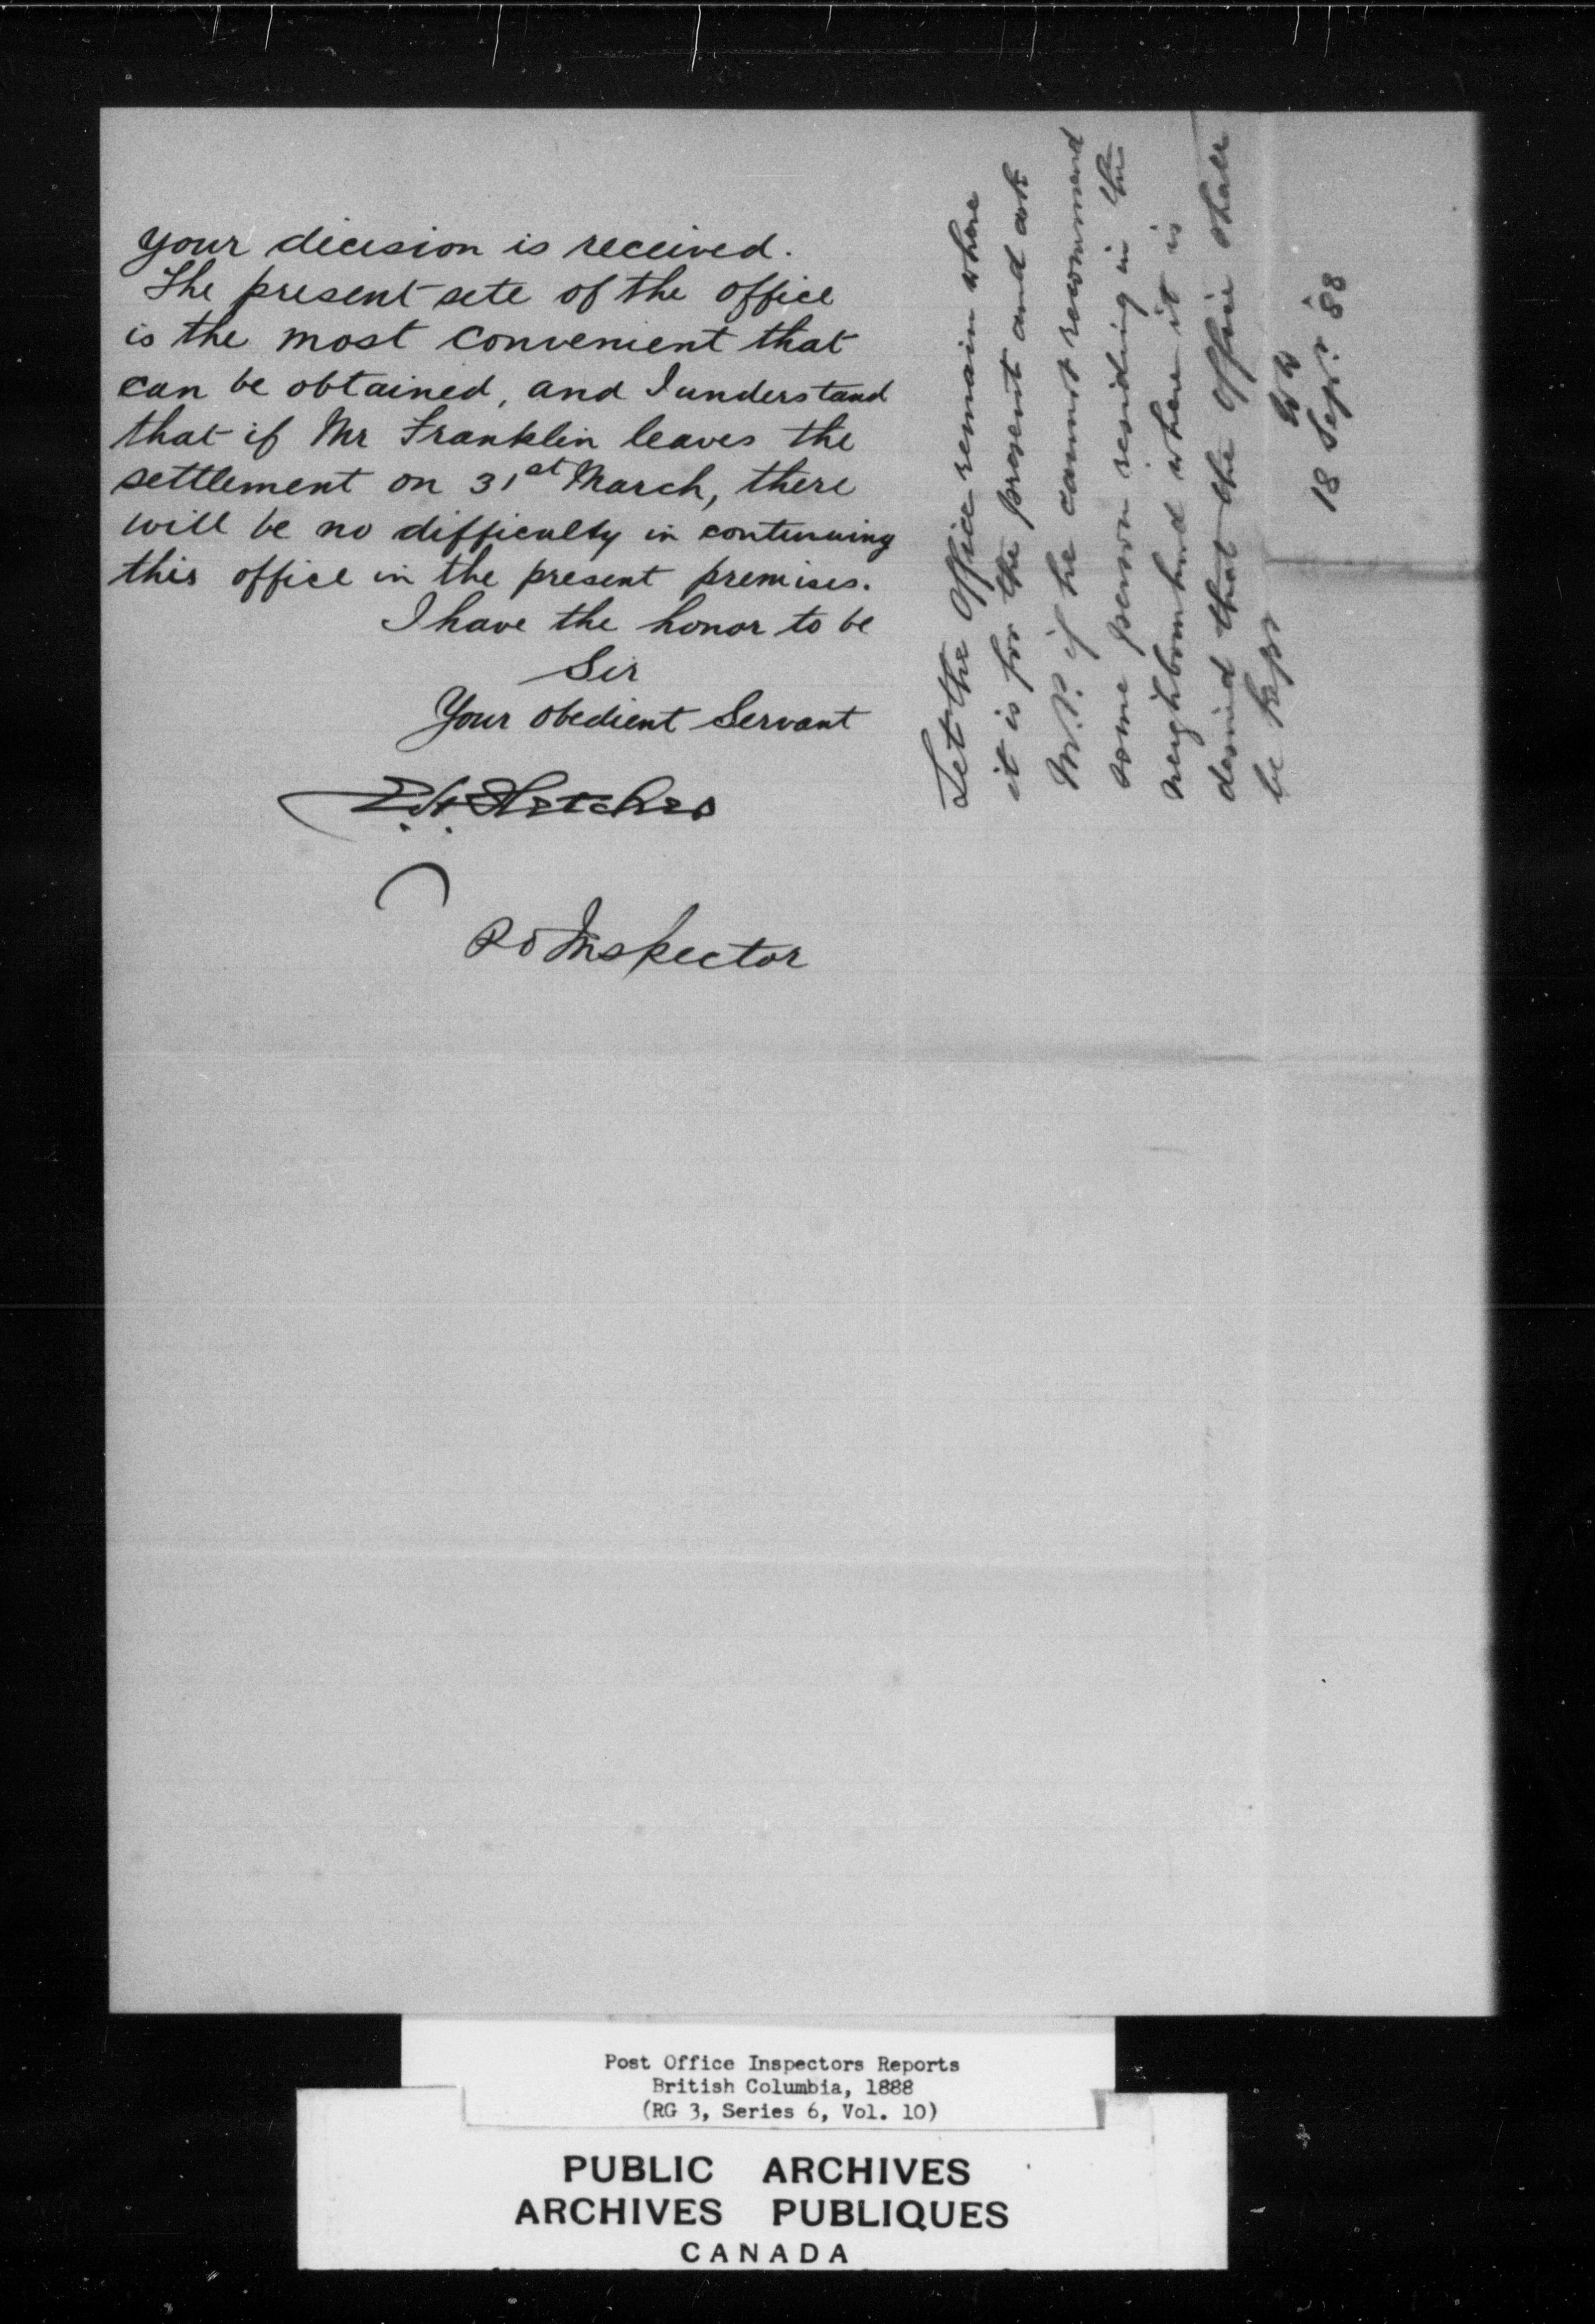 your decision is received.
The present sete of the office
is the most convenient that
can be obtained, and I understand
that if Mr Franklin leaves the
settlement on 31st March, there
will be no difficulty in continuing
this office in the present premises.
I have the honor to be
Sir
Your Obedient Servant
E.H. Fletcher
PO Inspector
Let the Office remain where
it is for the present and ask
M.P. if he cannot recommend
some person residing in the
neighbourhood where it is
desired that the Office shall
be kept
18 Sepr. '88
Post Office Inspectors Reports
British Columbia, 1888
(RG 3, Series 6, Vol. 10)
PUBLIC ARCHIVES
ARCHIVES PUBLIQUES
CANADA